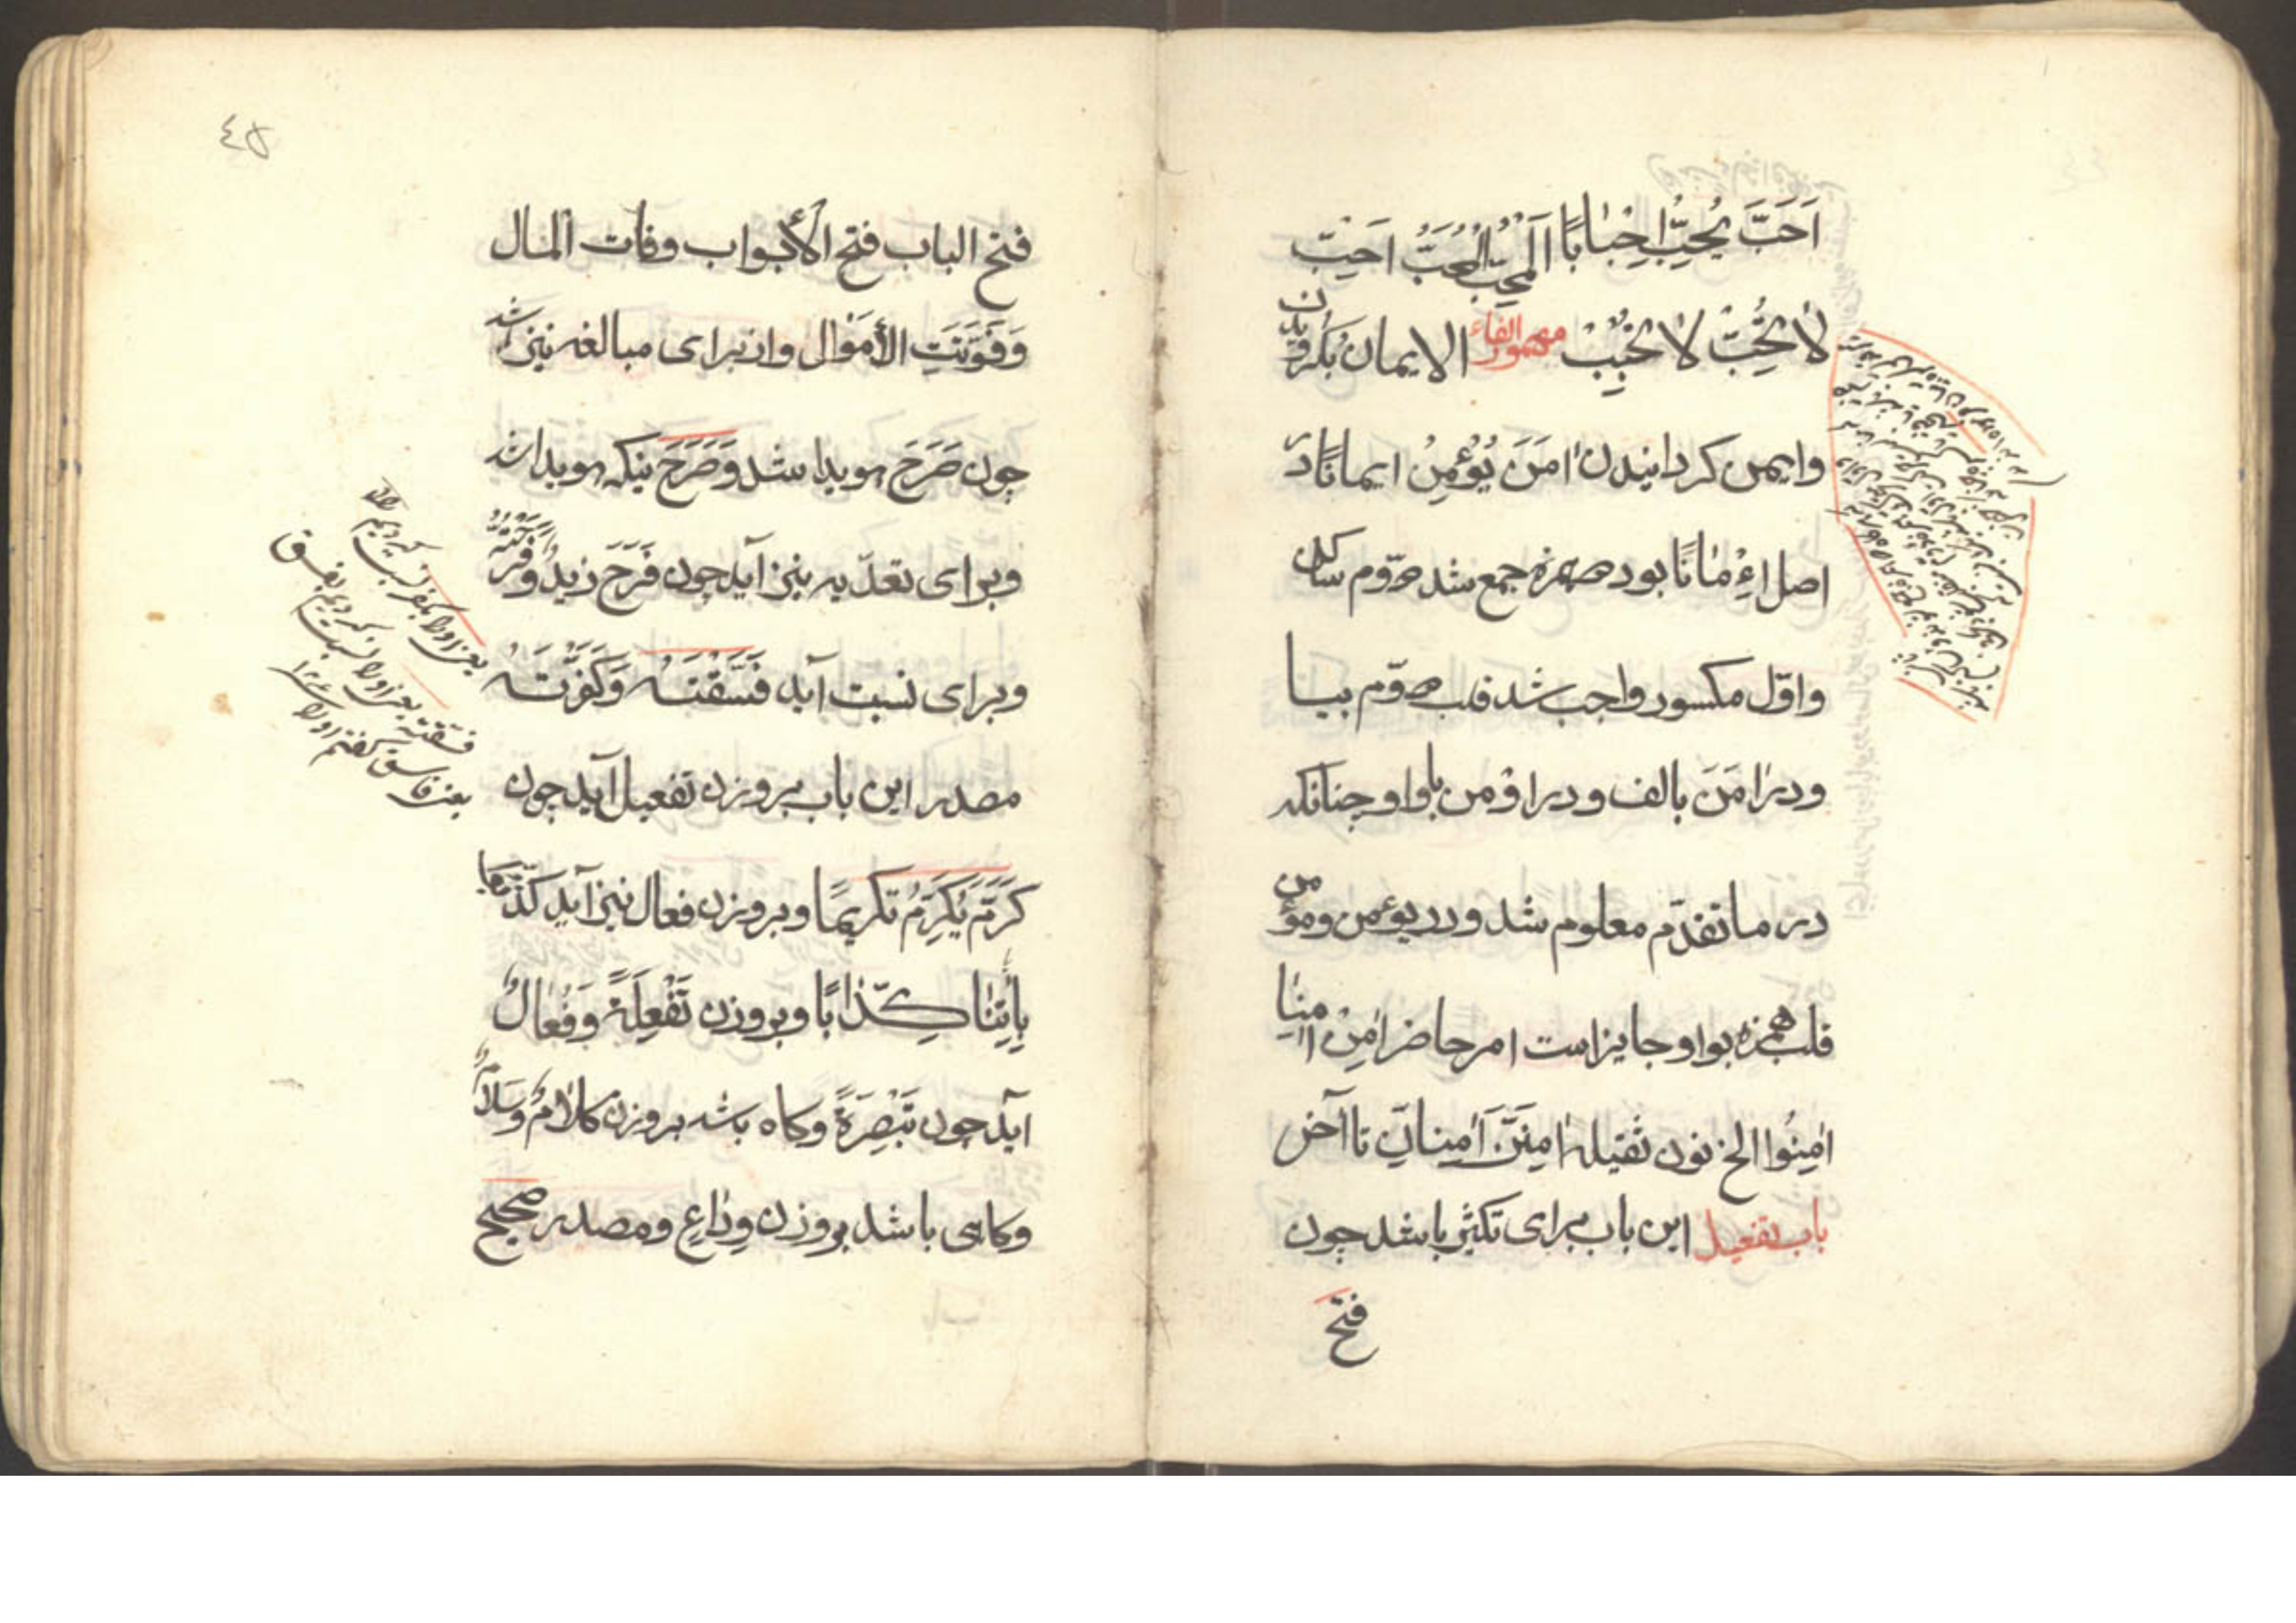 اَحَبَّ يُحِبُّ اِحْبَابًا اَلْمُحِبُّ الْمُحَبُّ احبب
لا تُحِبَّ لا تُحْبِبْ مهموز الفاء الایمان بكرویدن
وایمن کردانیدن اٰمَنَ يُؤْمِنُ ایمانًا در
اصل اءْمٰانًا بود دو همزه جمع شد دوّم ساکن
واوّل مکسور واجب شد قلب دوّم بیا
ودر اٰمَنَ بالف ودر اوْمن باواو چنانکه
در ما تقدّم معلوم شد ودر يوءمن ومؤمن
قلب همزه بواو جایز است امر حاضر اٰمِنْ اٰمِنٰا
اٰمِنُوا الخ نون ثقیله اٰمِنَنَّ اٰمِنانِّ تا آخر
باب تفعیل این باب برای تکثیر باشد چون
فتح
٤٥
فتح الباب فتح الأبواب وفات المال
وَفَوَّتَتِ الأَمْوٰال وان برای مبالغه نیز باشد
چون صَرَحَ هویدا شد وَصَرَّحَ نیکه هویدا شد
وبرای تعدّیه نیز آید چون فَرَحَ زیدٌ وَفَرَّحْتُهُ
وبرای نسبت آید فَسَّقْتَهُ وَكَفَّرْتَهُ
مصدر این باب بر وزن تفعیل آید چون
كَرَّمَ يُكَرِّمُ تكریمًا وبر وزن فعال نیز آید كَذَّبُوا
بِأٰيٰتِنٰا كِذّٰابًا وبر وزن تَفْعِلَةً وَفَعٰالٌ
آید چون تَبْصِرَةً وكاه باشد بر وزن كَلاٰمٌ وَسَلاٰمٌ
وكاهی باشد بر وزن وِدٰاعٍ ومصدر صحیح
یعنی اورا بکفر نسبت کردیم
یعنی اورا نسبت کردیم بفسق
فسقته
یعنی فاسق کفتم اورا